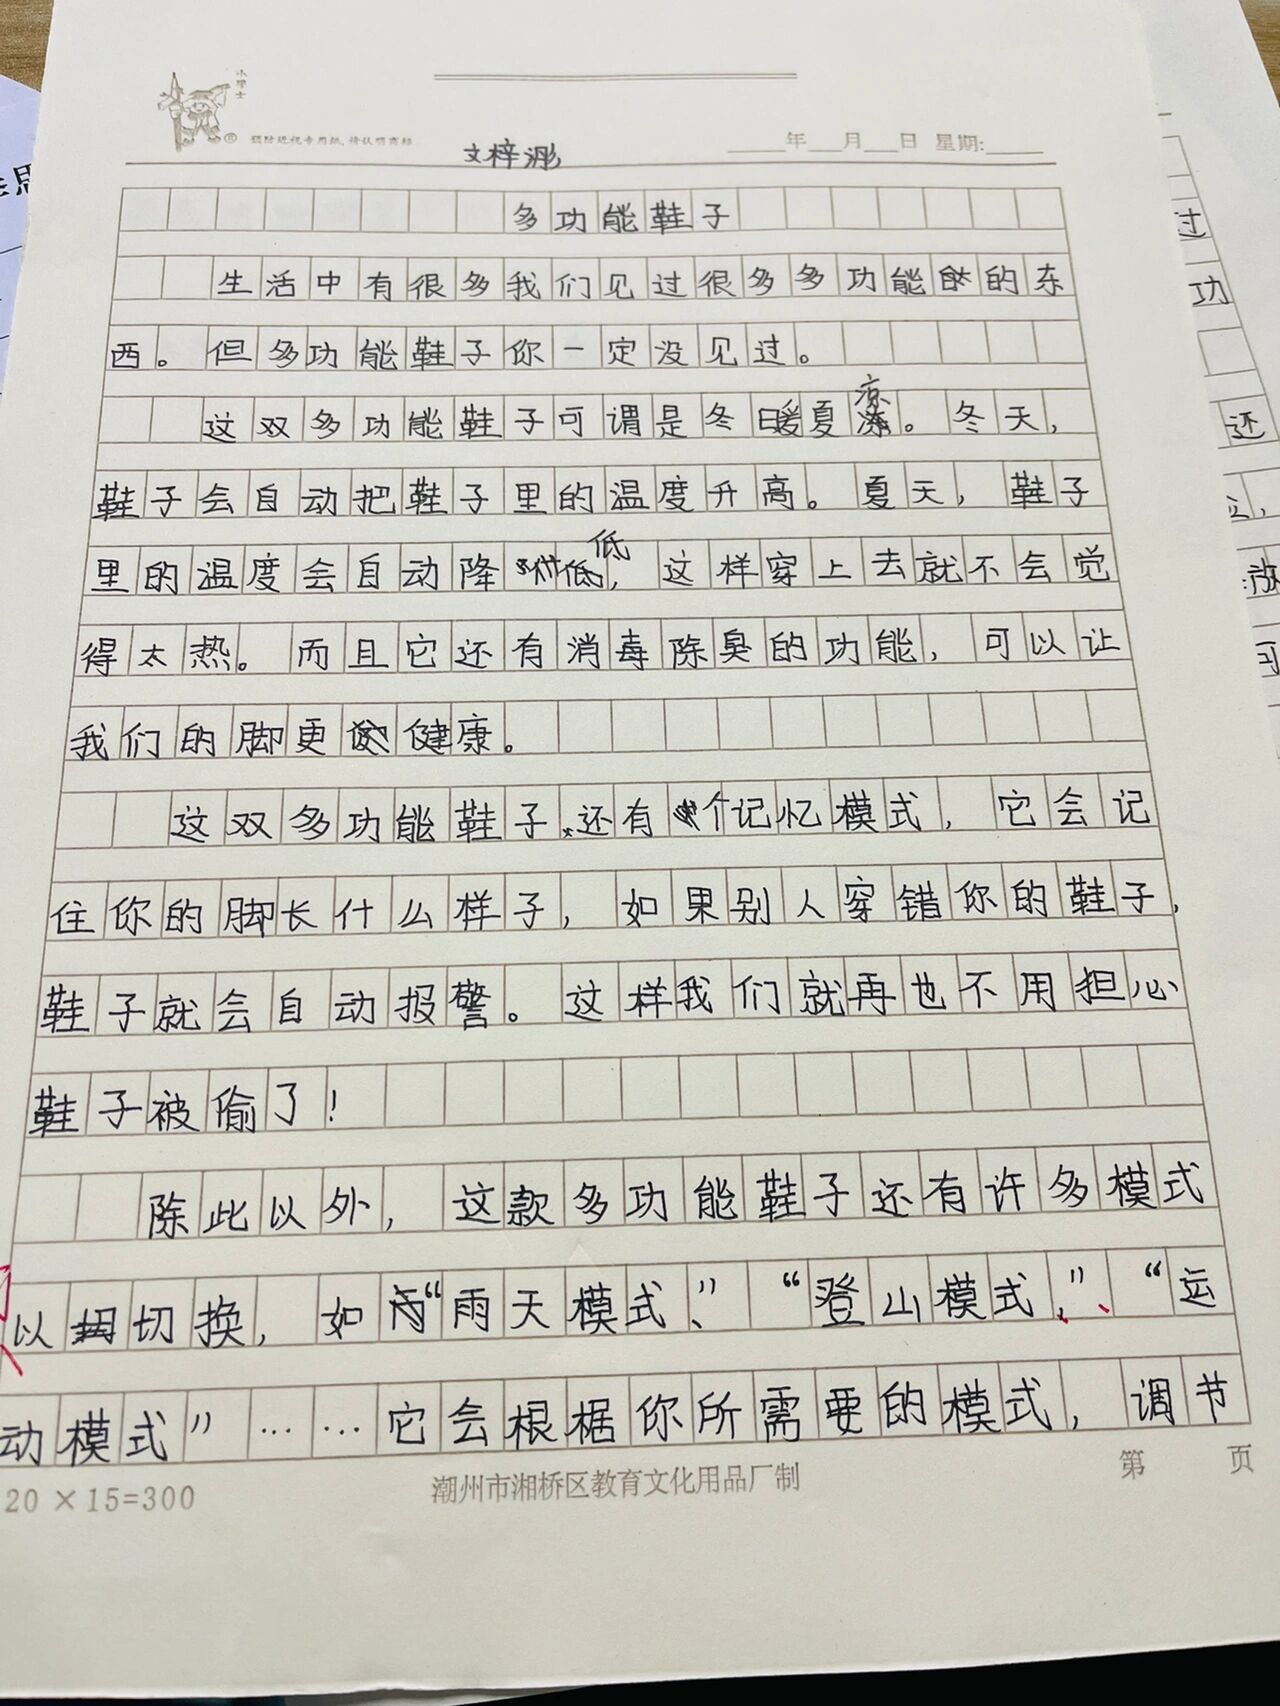 小博士
预防近视专用纸,请认明商标
年 月 日 星期:
文梓
多功能鞋子
生活中有很多我们见过很多多功能的东
西。但多功能鞋子你一定没见过。
这双多功能鞋子可谓是冬暖夏凉。冬天,
鞋子会自动把鞋子里的温度升高。夏天,鞋子
里的温度会自动降低,这样穿上去就不会觉
得太热。而且它还有消毒除臭的功能,可以让
我们的脚更健康。
这双多功能鞋子还有个记忆模式,它会记
住你的脚长什么样子,如果别人穿错你的鞋子,
鞋子就会自动报警。这样我们就再也不用担心
鞋子被偷了!
除此以外,这款多功能鞋子还有许多模式
以切换,如“雨天模式”、“登山模式”、“运
动模式”……它会根据你所需要的模式,调节
20×15=300
潮州市湘桥区教育文化用品厂制
第 页
过
功
还